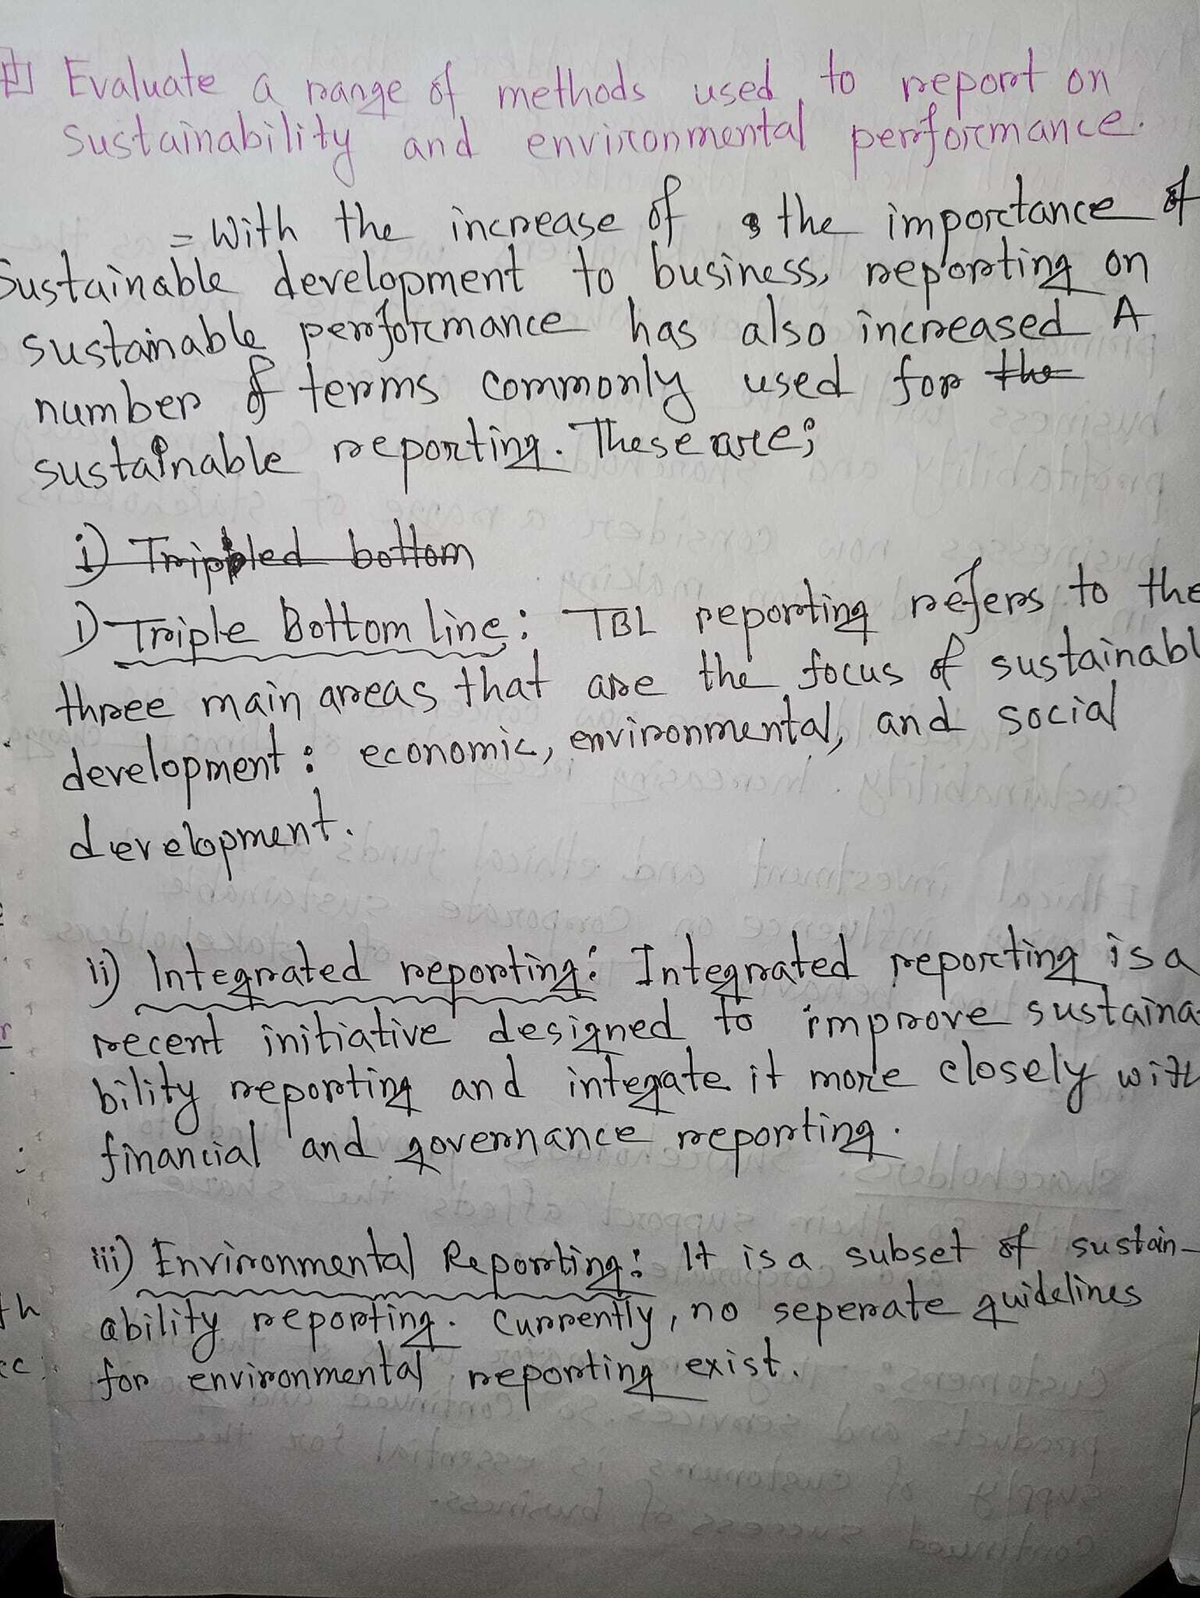 Evaluate a range of methods used to report on
sustainability and environmental performance.
= With the increase of the importance of
Sustainable development to business, reporting on
sustainable performance has also increased A
number of terms commonly used for the
sustainable reporting. These are;
i) Trippled bottom
i) Triple Bottom line: TBL reporting refers to the
three main areas that are the focus of sustainabl
development: economic, environmental, and social
development.
ii) Integrated reporting: Integrated reporting is a
recent initiative designed to improve sustaina-
bility reporting and integrate it more closely with
financial and governance reporting.
iii) Environmental Reporting: It is a subset of sustain-
ability reporting. Currently, no seperate guidelines
for environmental reporting exist.